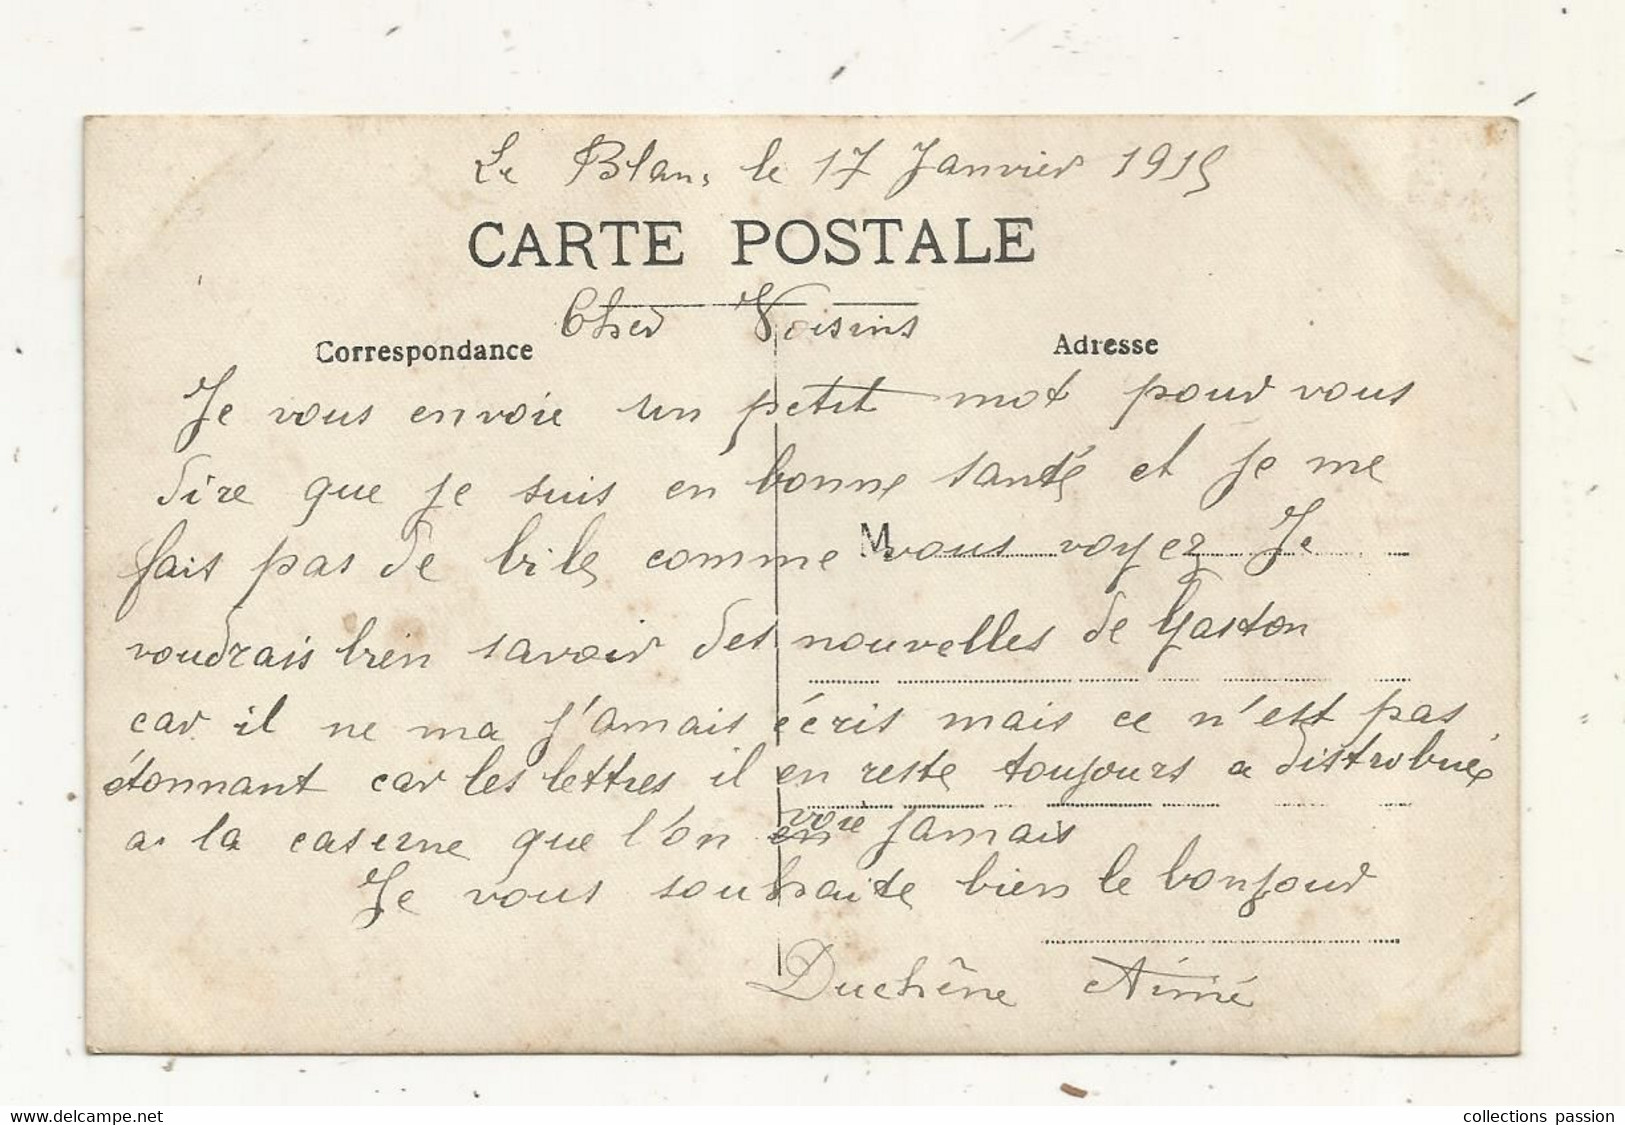 Le Blanc le 17 Janvier 1915
CARTE POSTALE
Cher Voisins
Correspondance
Adresse
Je vous envoie un petit mot pour vous
dire que je suis en bonne santé et je me
fais pas de bile comme vous voyez Je
M
voudrais bien savoir des nouvelles de Gaston
car il ne ma j'amais écris mais ce n'est pas
étonnant car les lettres il en reste toujours a distribué
a la caserne que l'on voie jamais
Je vous souhaite bien le bonjour
Duchêne Aimé
collections passion